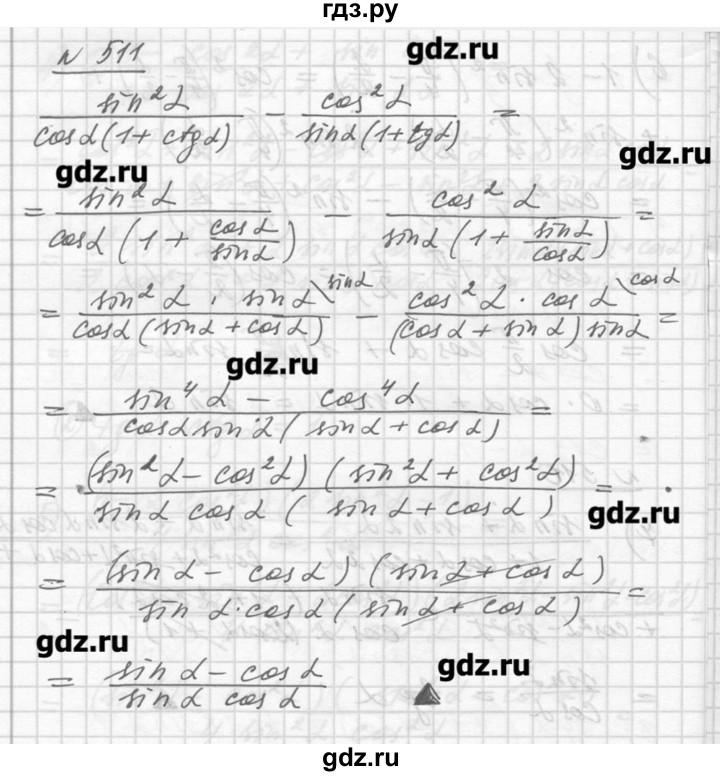 гдз.ру
№ 511
gdz.ru
sin²α / cosα(1 + ctgα) − cos²α / sinα(1 + tgα) =
gdz.ru
gdz.ru
= sin²α / cosα(1 + cosα/sinα) − cos²α / sinα(1 + sinα/cosα) =
= sin²α · sinα \sinα / cosα(sinα + cosα) − cos²α · cosα \cosα / (cosα + sinα) sinα =
gdz.ru
= sin⁴α − cos⁴α / cosα sin α (sinα + cosα) =
= (sin²α − cos²α) (sin²α + cos²α) / sinα cosα (sinα + cosα) =
gdz.ru
= (sinα − cosα) (sinα + cosα) / sinα · cosα (sinα + cosα) =
gdz.ru
gdz.ru
= sinα − cosα / sinα cosα
gdz.ru